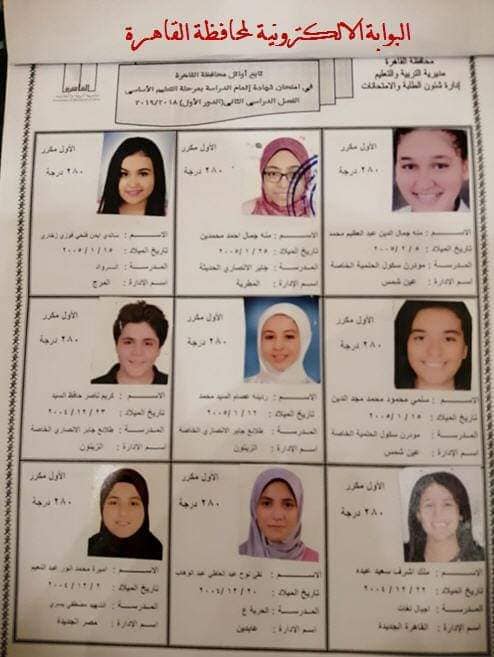 البوابة الالكترونية لمحافظة القاهرة
محافظة القاهرة
مديرية التربية والتعليم
إدارة شئون الطلبة والامتحانات
تابع أوائل محافظة القاهرة
في امتحان شهادة إتمام الدراسة بمرحلة التعليم الأساسي
الفصل الدراسي الثاني (الدور الأول) ٢٠١٩/٢٠١٨
الأول مكرر
٢٨٠ درجة
الاسم : منه جمال الدين عبد العظيم محمد
تاريخ الميلاد : ٢٠٠٥ / ٢ / ٥
المدرسة : مودرن سكول الحلمية الخاصة
اسم الإدارة : عين شمس
الأول مكرر
٢٨٠ درجة
الاسم : منه جمال احمد محمدين
تاريخ الميلاد : ٢٠٠٥ / ١ / ٢٥
المدرسة : جابر الانصاري الحديثة
اسم الإدارة : المطرية
الأول مكرر
٢٨٠ درجة
الاسم : ساندي ايمن فتحي فوزي زخاري
تاريخ الميلاد : ٢٠٠٥ / ١ / ١٥
المدرسة :
اسم الإدارة : المرج
الأول مكرر
٢٨٠ درجة
الاسم : سلمي محمود محمد مجد الدين
تاريخ الميلاد : ٢٠٠٥ / ١ / ١٥
المدرسة : مودرن سكول الحلمية الخاصة
اسم الإدارة : عين شمس
الأول مكرر
٢٨٠ درجة
الاسم : رنيم عصام السيد محمد
تاريخ الميلاد : ٢٠٠٥ / ١ / ١٢
المدرسة : طلائع جابر الانصاري الخاصة
اسم الإدارة : الزيتون
الأول مكرر
٢٨٠ درجة
الاسم : كريم ناصر حافظ السيد
تاريخ الميلاد : ٢٠٠٤ / ١٢ / ٢٣
المدرسة : طلائع جابر الانصاري الخاصة
اسم الإدارة : الزيتون
الأول مكرر
٢٨٠ درجة
الاسم : ملك اشرف سعيد عبده
تاريخ الميلاد : ٢٠٠٤ / ١٢ / ٢٢
المدرسة : اجيال لغات
اسم الإدارة : القاهرة الجديدة
الأول مكرر
٢٨٠ درجة
الاسم : نوح عبد العاطي عبد الوهاب
تاريخ الميلاد : ٢٠٠٤ / ١٢ / ٢٠
المدرسة : الحرية ع
اسم الإدارة : عابدين
الأول مكرر
٢٨٠ درجة
الاسم : اميرة محمد انور عبد النعيم
تاريخ الميلاد : ٢٠٠٤ / ١٢ / ٢
المدرسة : الشهيد مصطفي يسري
اسم الإدارة : مصر الجديدة